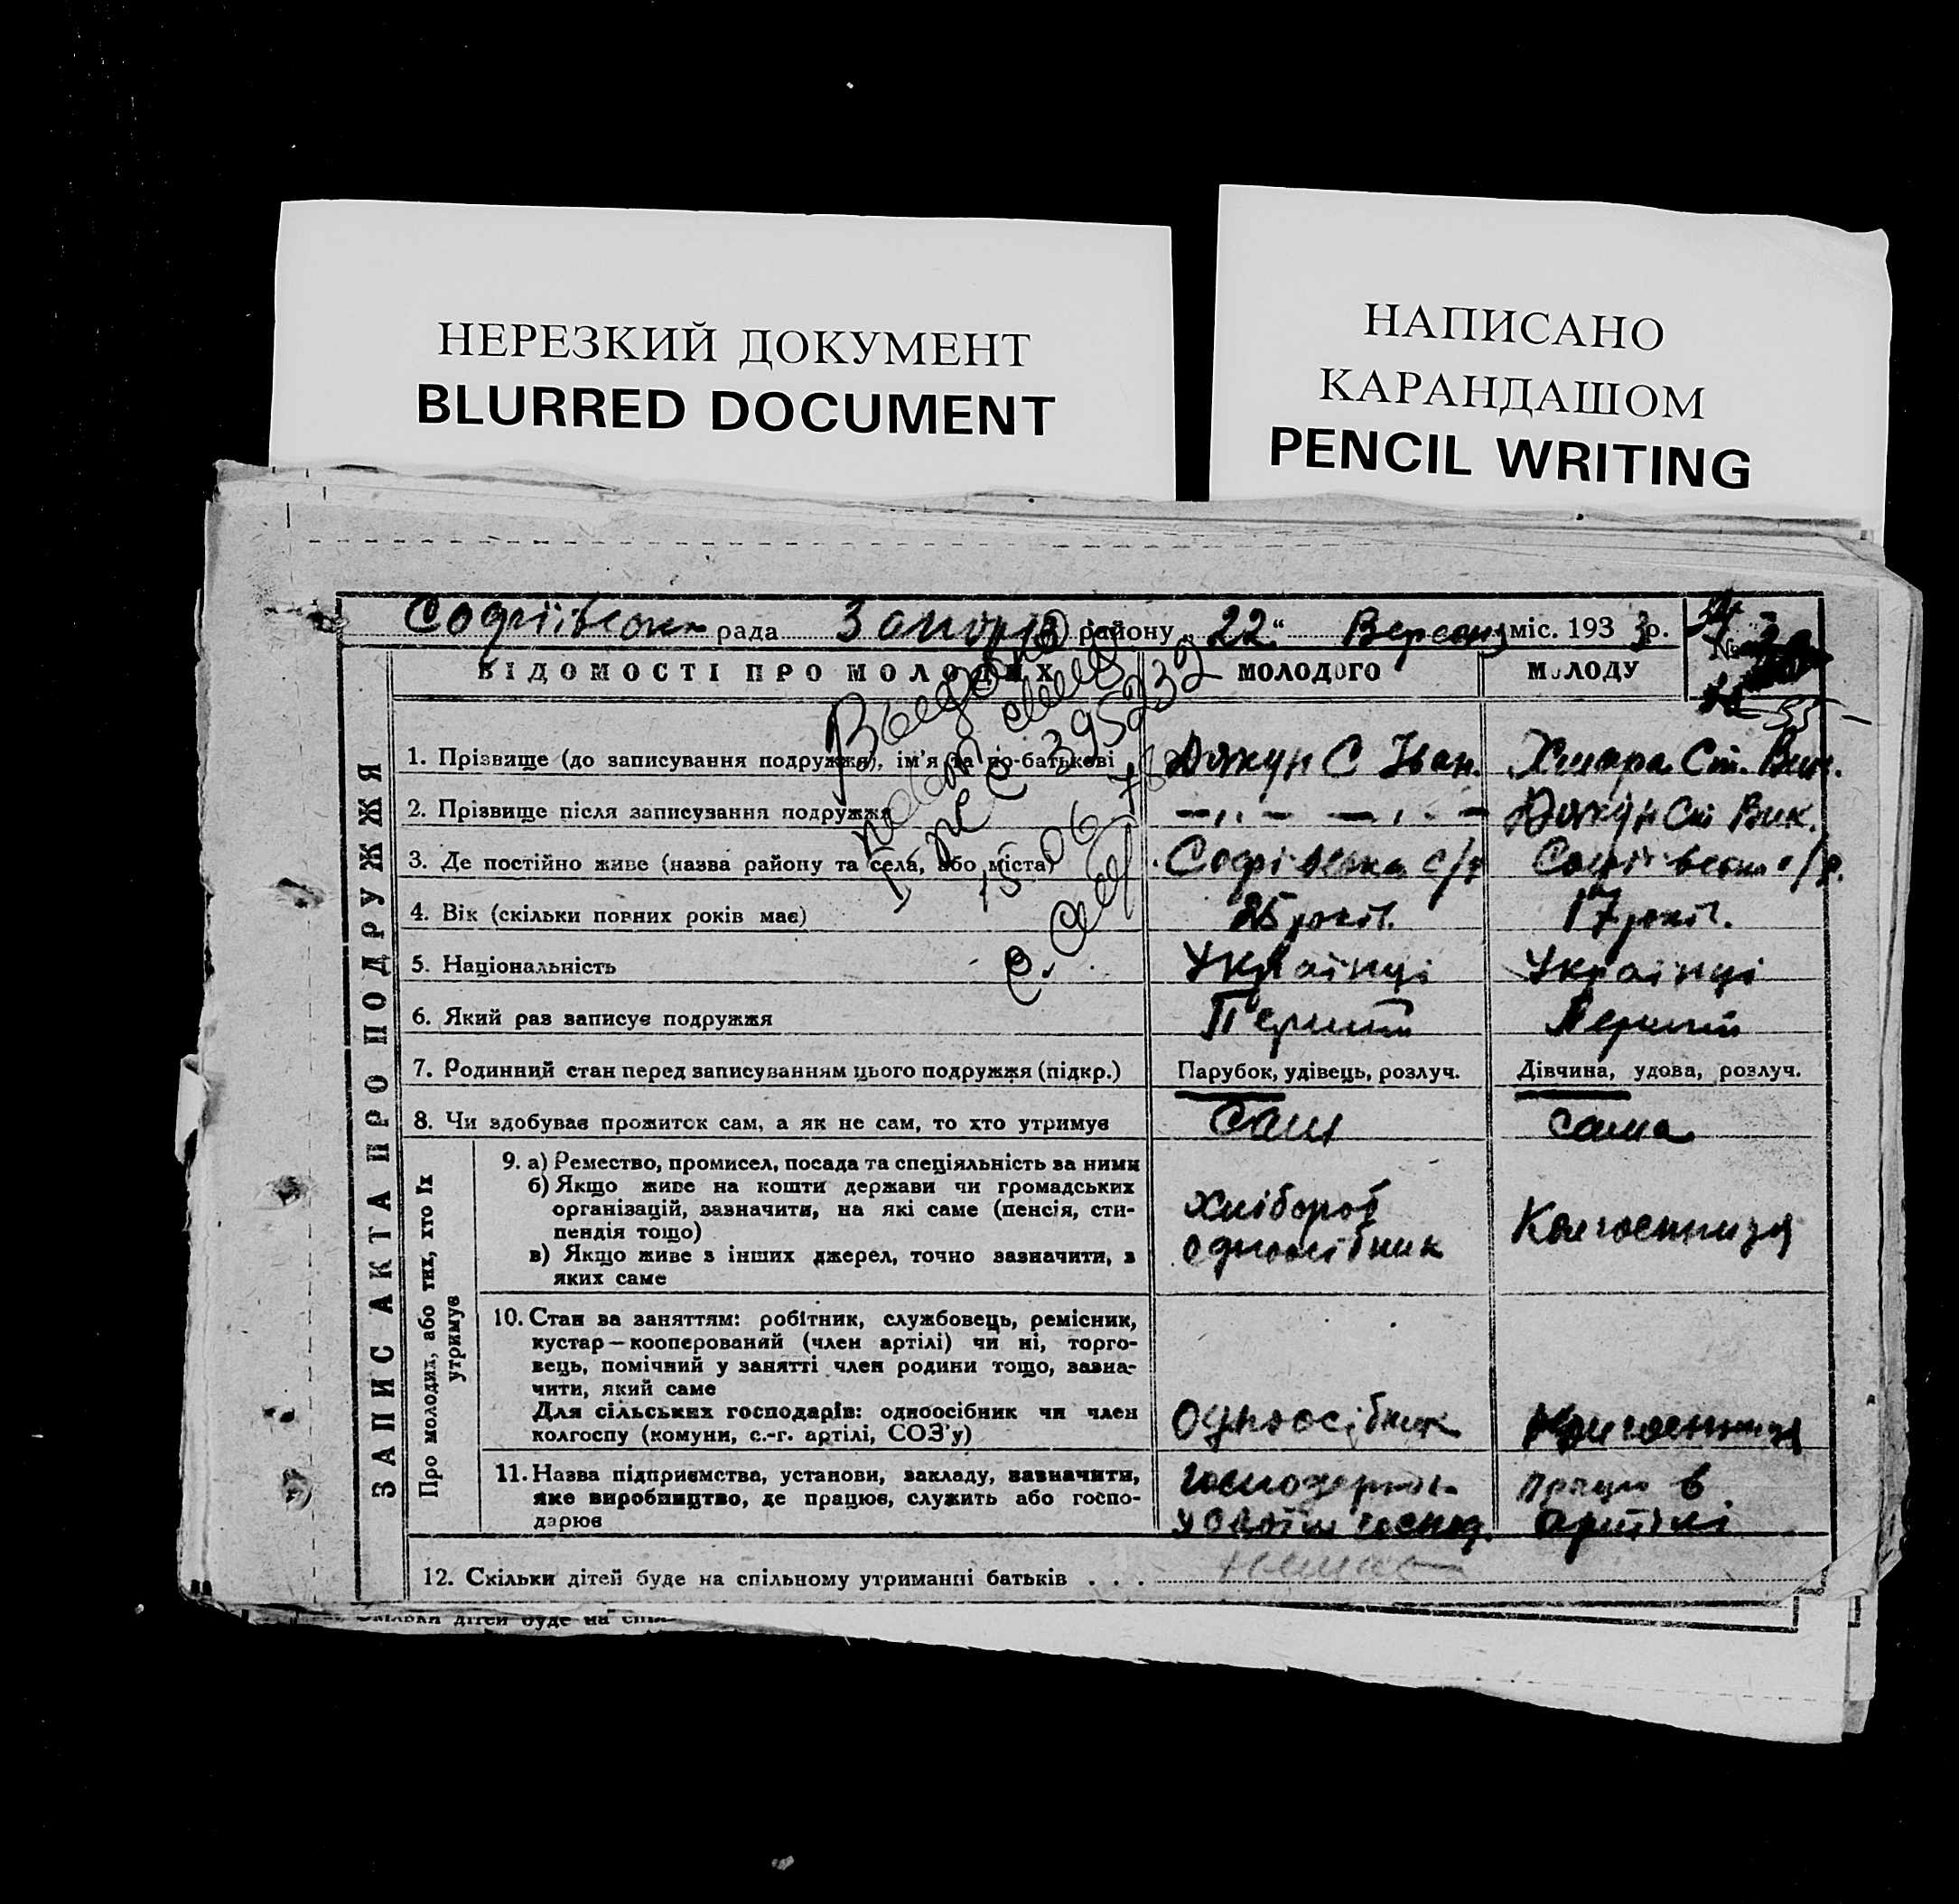 НЕРЕЗКИЙ ДОКУМЕНТ
BLURRED DOCUMENT
НАПИСАНО
КАРАНДАШОМ
PENCIL WRITING
рада району „ 22 “ міс. 193 3 р.
№
ВІДОМОСТІ ПРО МОЛОДИХ МОЛОДОГО МОЛОДУ
35
ЗАПИС АКТА ПРО ПОДРУЖЖЯ
395232
1. Прізвище (до записування подружжя), ім'я та по-батькові Іван. Хмара Ст. Вик.
2. Прізвище після записування подружжя — „ — — „ — Вик.
3. Де постійно живе (назва району та села, або міста) Софіївська с/р Софіївська с/р.
4. Вік (скільки повних років має) 25 років. 17 років.
5. Національність Українці Українці
6. Який раз записує подружжя Перший Перший
7. Родинний стан перед записуванням цього подружжя (підкр.) Парубок, удівець, розлуч. Дівчина, удова, розлуч.
8. Чи здобуває прожиток сам, а як не сам, то хто утримує Сам сама
Про молодих, або тих, хто їх
утримує
9. а) Ремество, промисел, посада та спеціяльність за ними
б) Якщо живе на кошти держави чи громадських
організацій, зазначити, на які саме (пенсія, сти-
пендія тощо)
в) Якщо живе з інших джерел, точно зазначити, з
яких саме
Хлібороб
одноосібник
Колгоспниця
10. Стан за заняттям: робітник, службовець, ремісник,
кустар — кооперований (член артілі) чи ні, торго-
вець, помічний у занятті член родини тощо, зазна-
чити, який саме
Для сільських господарів: одноосібник чи член
колгоспу (комуни, с.-г. артілі, СОЗ'у)
Одноосібник Колгоспниця
11. Назва підприємства, установи, закладу, зазначити,
яке виробництво, де працює, служить або госпо-
дарює
у своїм господ.
працю в
артілі
12. Скільки дітей буде на спільному утриманні батьків . . . немає